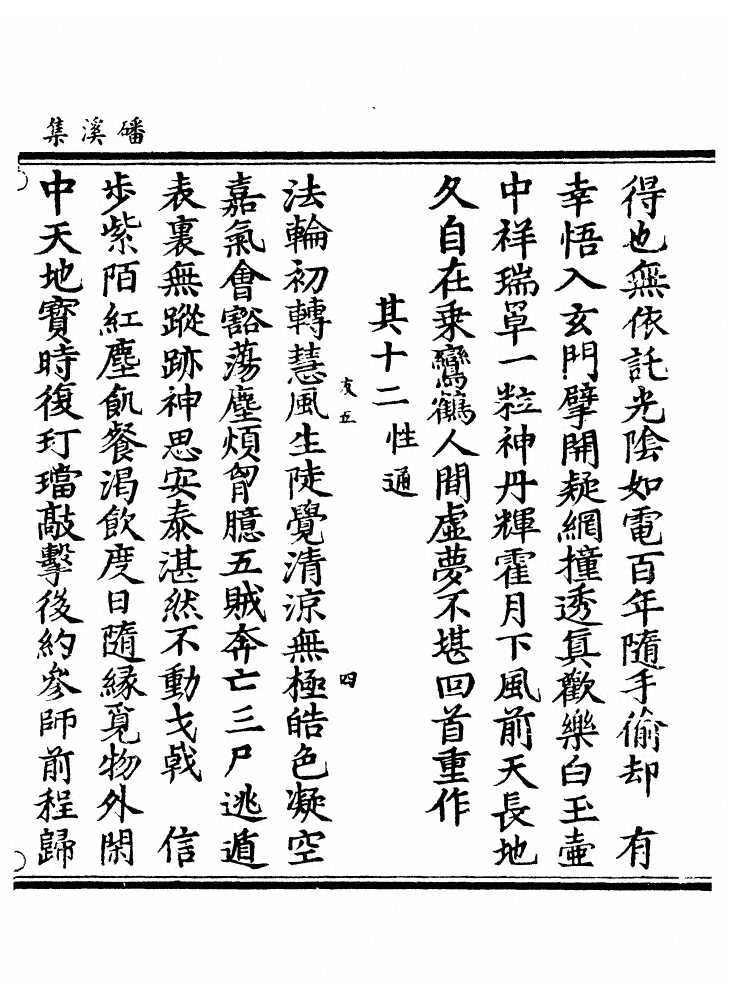 磻溪集
得也無依託光陰如電百年隨手偷却　有
幸悟入玄門擘開疑網撞透真歡樂白玉壷
中祥瑞罩一粒神丹輝霍月下風前天長地
久自在乗鸞鶴人間虛夢不堪回首重作
其十二性通
友五
四
法輪初轉慧風生陡覺清涼無極皓色凝空
嘉氣會豁蕩塵煩胷臆五賊奔亡三尸逃遁
表裏無蹤跡神思安泰湛然不動戈戟　信
步紫陌紅塵飢餐渴飲度日隨縁覓物外閑
中天地寳時復玎璫敲擊後約參師前程歸